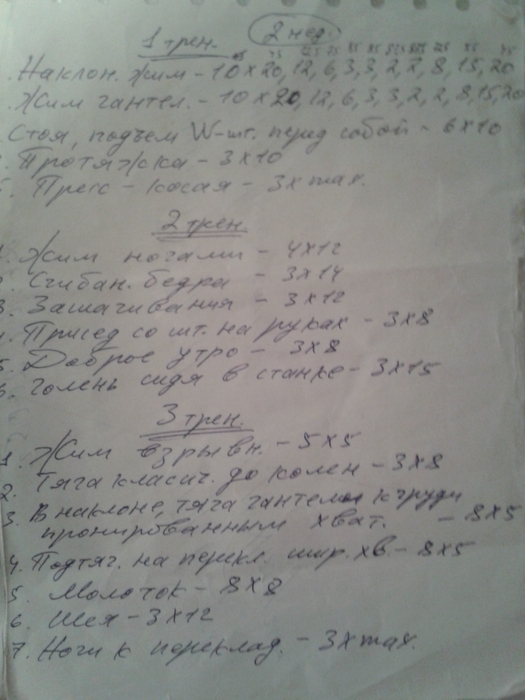 1 трен. 2 нед.
Наклон. жим - 10х20, 12, 6, 3, 3, 2, 2, 8, 15, 20
Жим гантел. - 10х20, 12, 6, 3, 3, 2, 2, 8, 15, 20
Стоя, подъем W-шт. перед собой - 6х10
Протяжка - 3х10
Пресс - косая - 3х max.
2 трен.
Жим ногами - 4х12
Сгибан. бедра - 3х14
3. Зашагивания - 3х12
Присед со шт. на руках - 3х8
5. Доброе утро - 3х8
6. Голень сидя в станке - 3х15
3 трен.
1. Жим взрывн. - 5х5
2. Тяга класич. до колен - 3х8
3. В наклоне, тяга гантелей к груди
пронированным хват. - 8х5
4. Подтяг. на перекл. шир. хв. - 8х5
5. Молоток - 8х8
6. Шея - 3х12
7. Ноги к переклад. - 3х max.